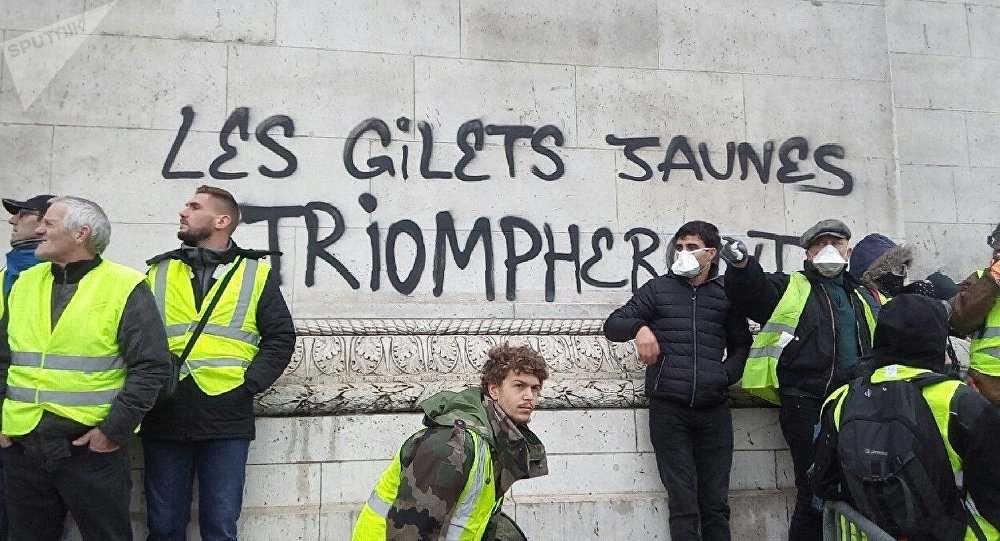 SPUTNIK
LES GiLETS JAUNES
TRiOMPHERONT